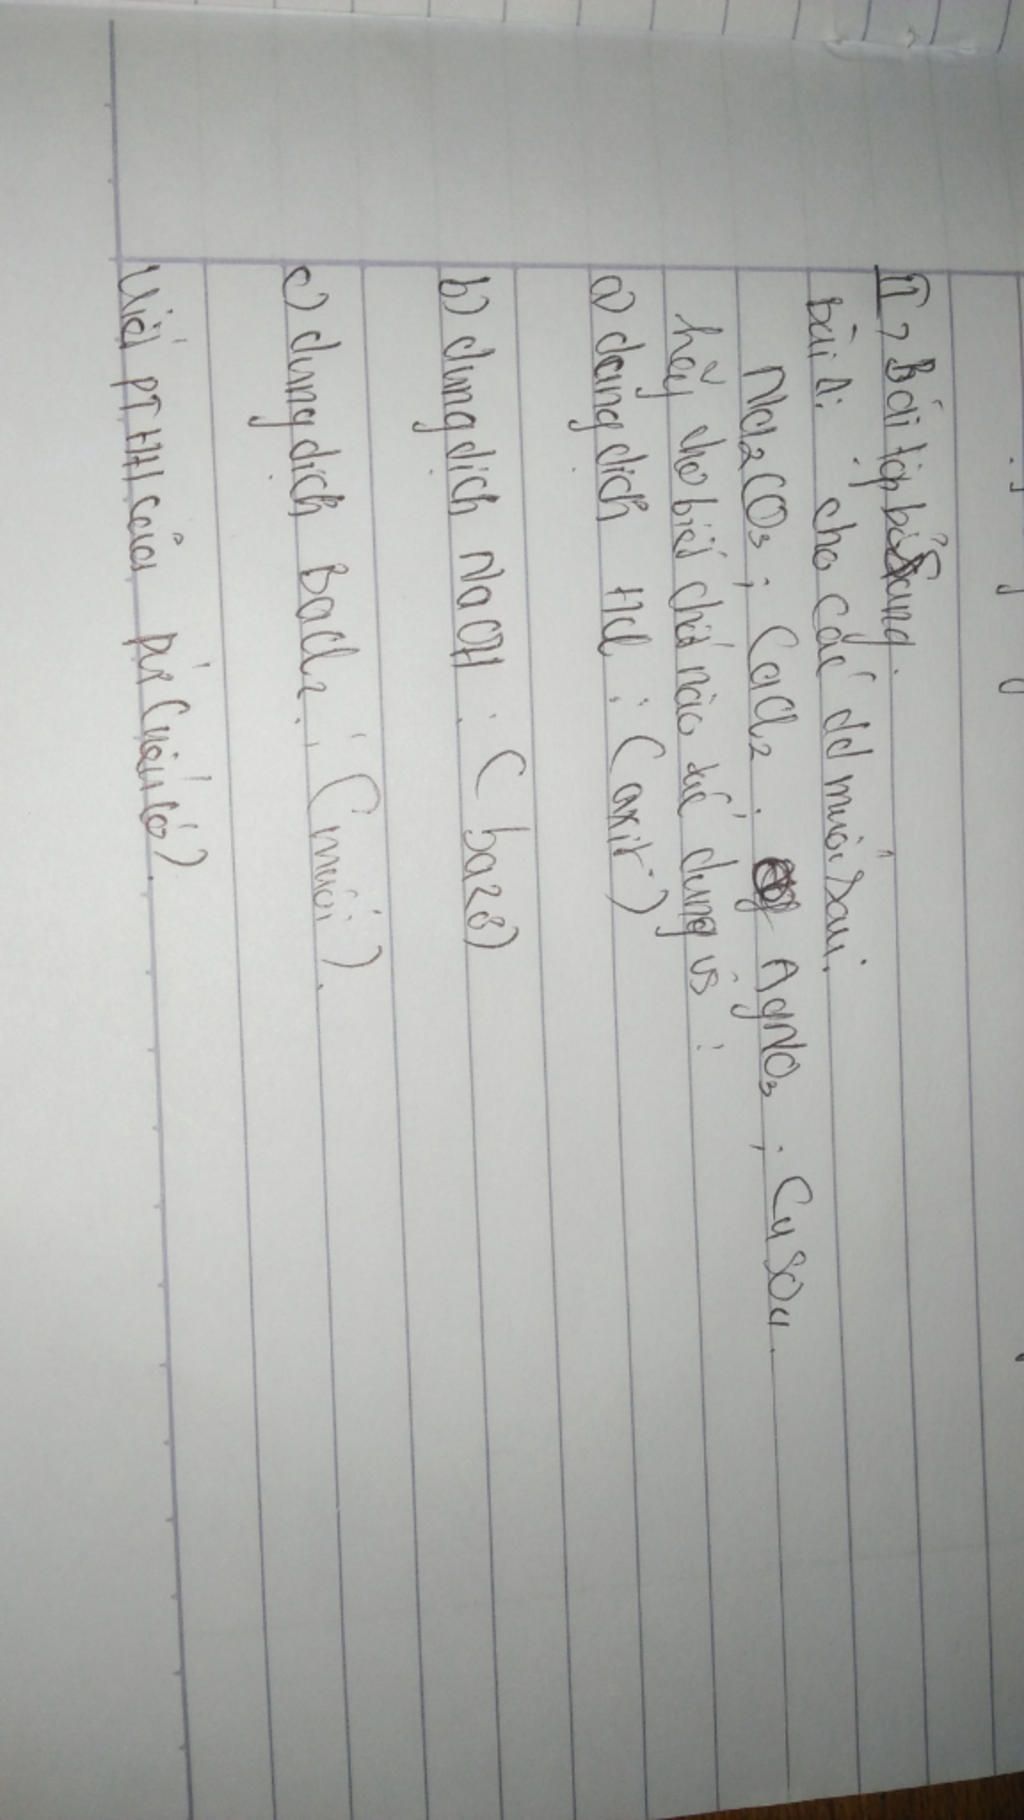 II, Bài tập bổ sung.
bài 1: cho các dd muối sau.
Na2CO3; CaCl2. AgNO3; CuSO4.
hãy cho biết chất nào tác dụng vs:
a) dung dịch HCl: (axit)
b) dung dịch NaOH: (bazơ)
c) dung dịch BaCl2: (muối).
Viết PTHH của pứ (nếu có).